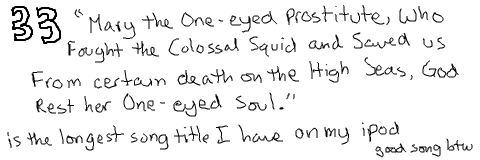 33 "Mary the One-eyed Prostitute, Who
Fought the Colossal Squid and Saved us
From certain death on the High Seas, God
Rest her One-eyed Soul."
is the longest song title I have on my ipod
good song btw